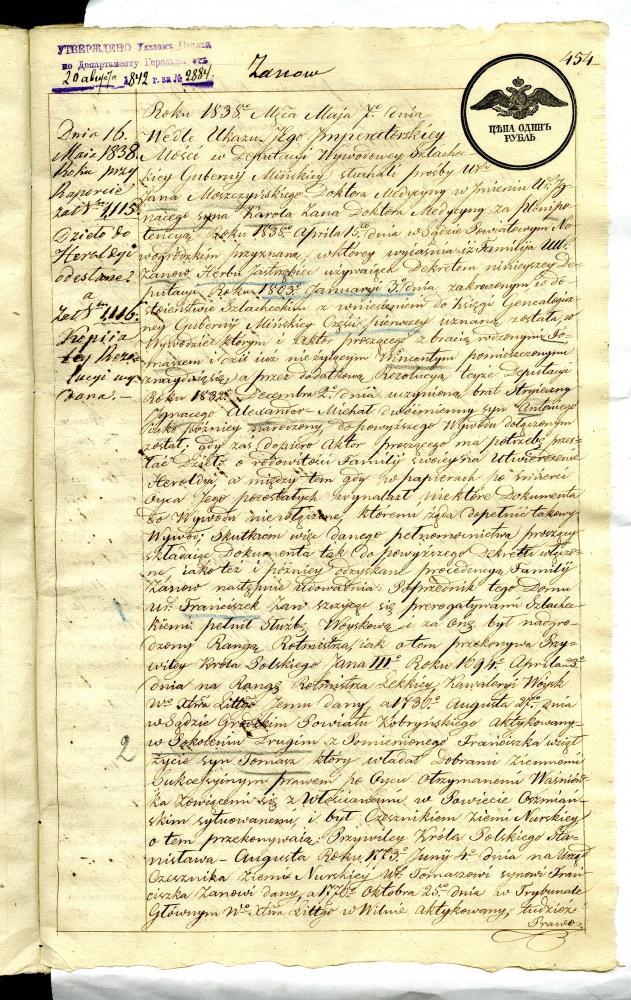 УТВЕРЖДЕНО Указомъ Сената
по Департаменту Герольдіи отъ
20 августа 1842 г. за № 2884.
Zanow
454
ЦѢНА ОДИНЪ
РУБЛЬ
Dnia 16
Maia 1838
Roku przy
Raporcie
zа Nrem 1,115
Dzieło do
Heroldyi
odesłane
a
Za Nrem 1,116
Kopija
tey Rezo-
lucyi wy-
dana. —
Roku 1838go Mca Maja 7o dnia
Wedle Ukazu Jego Imperatorskiey
Mości w Deputacyi Wywodowey Szlachec-
kiey Gubernij Mińskiey słuchali prośby Wgo
Jana Moszczyńskiego Doktora Medycyny w Jmieniu Wo Jg-
nacego syna Karola Zana Doktora Medycyny za Plenipo-
tencyą Roku 1838go Aprila 15o dnia w Sądzie Powiatowym No-
wogródzkim przyznaną, w którey wyjaśnia iż Familija UU.
Zanow Herbu Jastrzębiec używaiąca Dekretem ninieyszey De-
putacyi Roku 1803go January 3o dnia zakroczonym w do-
stoieństwie Szlacheckim z wniesieniem do Xięgi Genealogicz-
ney Gubernij Mińskiey Części pierwszey uznaną została, w
Wywodzie którym i Aktor proszącego z bracią rodzonymi To-
maszem i dziś iuż nieżyiącym Wincentym pomieszczonymi
znayduią się, a przez dodatkową Rezolucyą teyże Deputacyi
Roku 1832go Decembra 2o dnia uczynioną brat Stryieczny
Jgnacego Alexander-Michał dwóimienny syn Antoniego
iako później narodzony do powyższego Wywodu dołączonym
został, gdy zaś dopiero Aktor proszącego ma potrzebę przes-
łać Dzieło o rodowitości Familij swoiey na Utwierdzenie
Heroldyi, a między tem gdy w papierach po śmierci
Oyca Jego pozostałych wynalazł niektóre Dokumenta
do Wywodu nie włączone, któremu żąda dopełnić takowy
Wywód; Skutkiem więc danego pełnomocnictwa proszący
składaiąc Dokumenta tak do powyższego Dekretu włączo-
ne iako też i później odzyskane procedencyą Familij
Zanow następnie udowadnia: Poprzednik tego Domu
Ur. Franciszek Zan szczycąc się prerogatywami Szlache-
ckiemi pełnił Służbę Woyskową i za Oną był nagro-
dzony Rangą Rotmistrza, iak o tem przekonywa Przy-
wiley Króla Polskiego Jana IIIo Roku 1694o Aprila
dnia na Rangę Rotmistrza Lekkiey Kawaleryi Woysk
Wo Xtwa Littgo Jemu dany, a 1736o Augusta dnia
w Sądzie Grodzkim Powiatu Kobryńskiego Aktykowany
2
w Pokoleniu Drugim z Pomienionego Franciszka wziął
życie syn Tomasz który władał Dobrami ziemnemi
Sukcessyinym prawem po Oycu Otrzymanemi Waśniów-
ka Zowiącemi się z Włościanami w Powiecie Oszmiań-
skim sytuowanemi, i był Czesznikiem Ziemi Nurskiey
o tem przekonywaią: Przywiley Króla Polskiego Sta-
nisława-Augusta Roku 1773o Juny 4o dnia na Urząd
Czesznika Ziemi Nurskiey Ur. Tomaszowi synowi Fran-
ciszka Zanowi dany, a 1776o Oktobra 25o dnia w Trybunale
Głównym Wo Xtwa Littgo w Wilnie Aktykowany; tudzież
Prawo